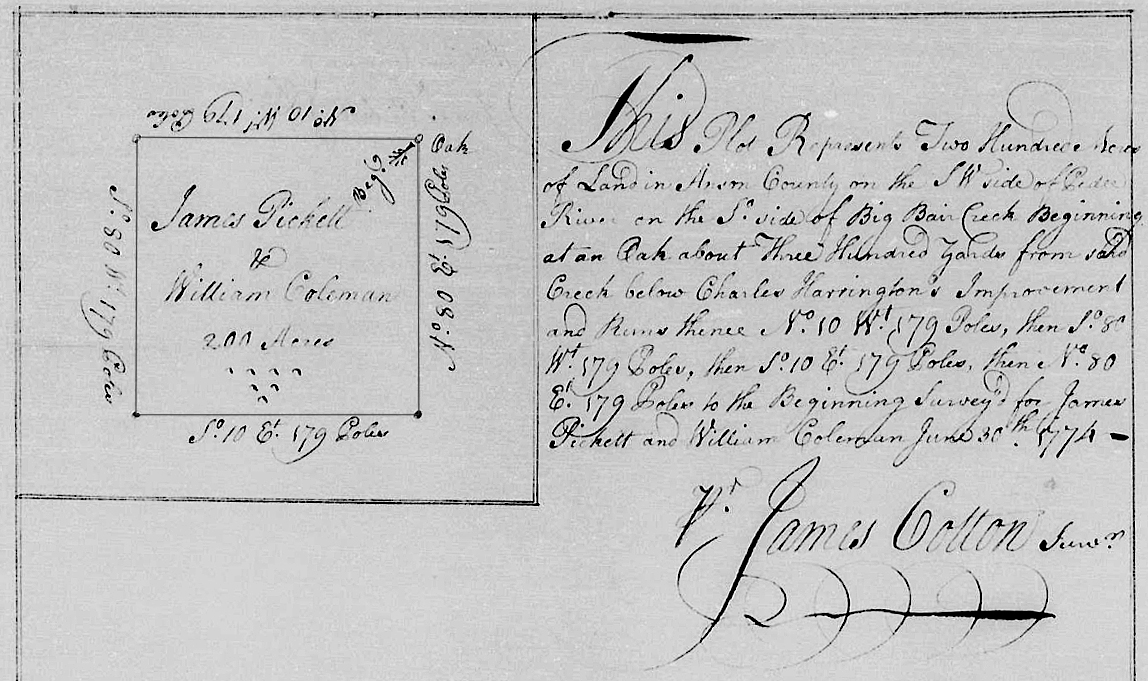 No. 10 Wt. 179 Poles
Oak
Beg:g
So. 80 Wt. 179 Poles
James Pickett
&
William Coleman
200 Acres
No. 80 Et. 179 Poles
So. 10 Et. 179 Poles
This Plot Represents Two Hundred Acres
of Land in Anson County on the SW side of Pedee
River on the So. side of Big Bair Creek Beginning
at an Oak about Three Hundred Yards from said
Creek below Charles Harrington's Improvement
and Runs thence No. 10 Wt. 179 Poles, then So. 80
Wt. 179 Poles, then So. 10 Et. 179 Poles, then No. 80
Et. 179 Poles to the Beginning Survey'd for James
Pickett and William Coleman June 30th. 1774 —
Pr. James Cotton Survr.